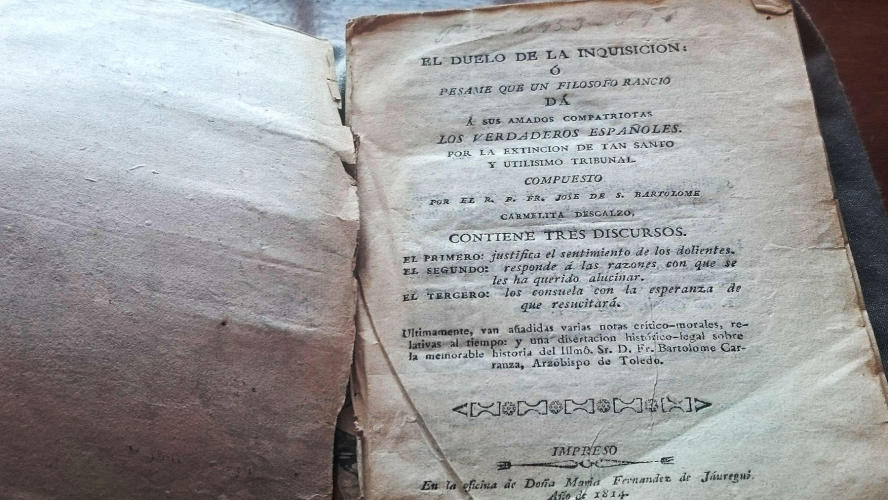 EL DUELO DE LA INQUISICION:
Ó
PESAME QUE UN FILOSOFO RANCIO
DÁ
Á SUS AMADOS COMPATRIOTAS
LOS VERDADEROS ESPAÑOLES.
POR LA EXTINCION DE TAN SANTO
Y UTILISIMO TRIBUNAL.
COMPUESTO
POR EL R. P. FR. JOSE DE S. BARTOLOME
CARMELITA DESCALZO,
CONTIENE TRES DISCURSOS.
EL PRIMERO: justifica el sentimiento de los dolientes.
EL SEGUNDO: responde á las razones con que se
les ha querido alucinar.
EL TERCERO: los consuela con la esperanza de
que resucitará.
Ultimamente, van añadidas varias notas critico-morales, re-
lativas al tiempo: y una disertacion histórico-legal sobre
la memorable historia del Illmô. Sr. D. Fr. Bartolome Car-
ranza, Arzobispo de Toledo.
IMPRESO
En la oficina de Doña Maria Fernandez de Jáuregui.
Año de 1814.